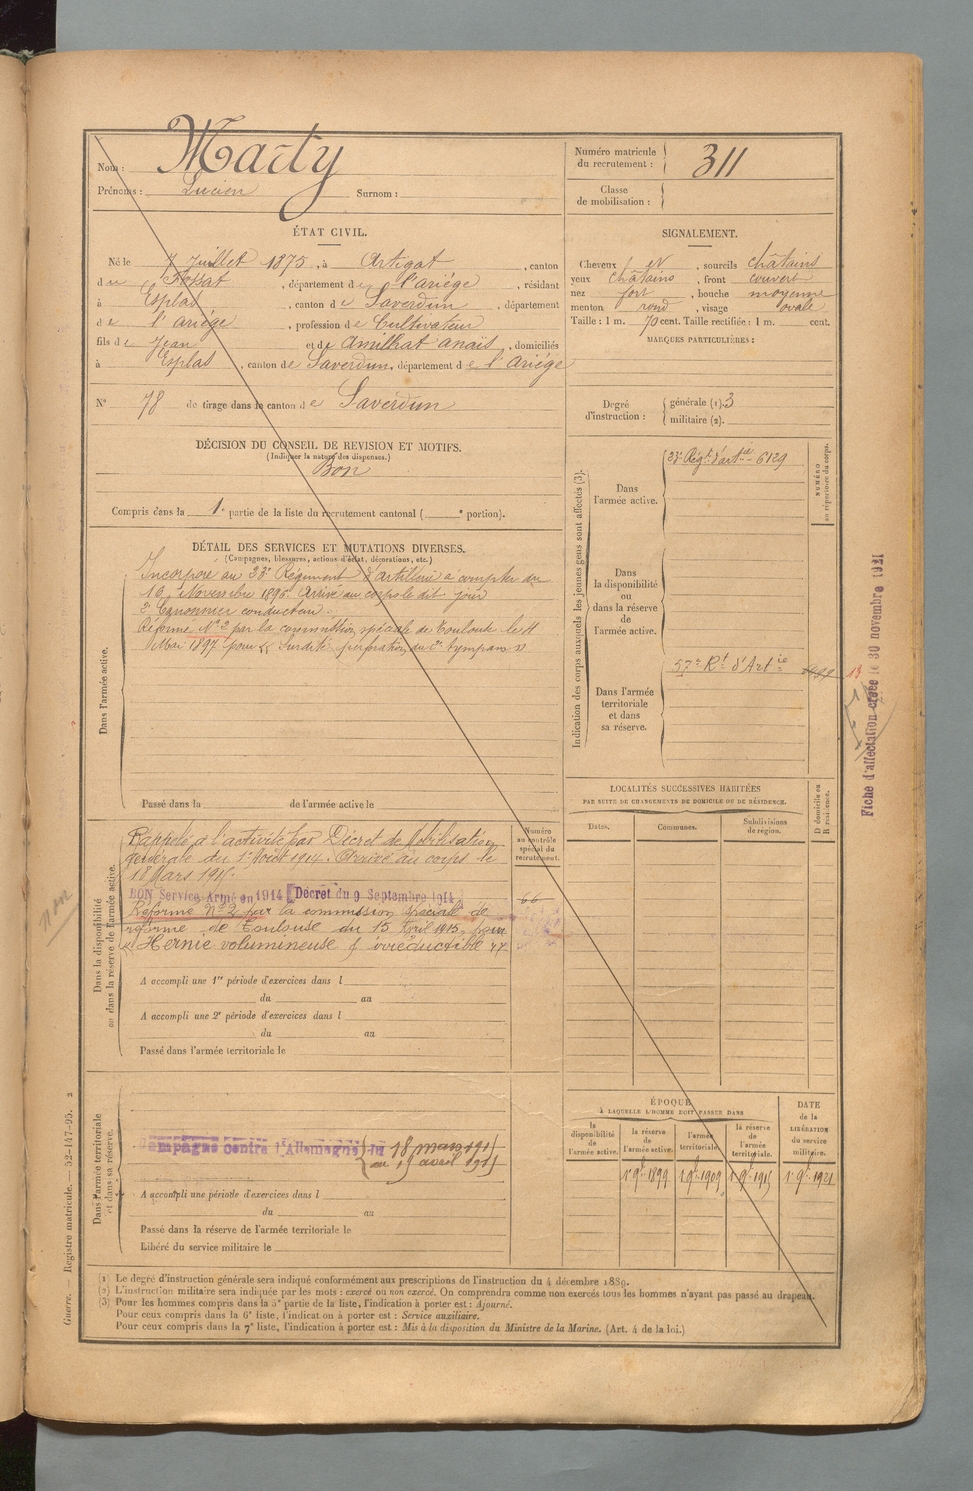 Nom : Marty
Prénoms : Lucien Surnom :
Numéro matricule
du recrutement : 311
Classe
de mobilisation :
ÉTAT CIVIL.
Né le 7 Juillet 1875, à Artigat, canton
du Fossat, département de l'Ariége, résidant
à Esplas, canton de Saverdun, département
de l'Ariége, profession de Cultivateur
fils de Jean et de Amilhat Anaïs, domiciliés
à Esplas, canton de Saverdun, département de l'Ariége
N° 78 de tirage dans le canton de Saverdun
DÉCISION DU CONSEIL DE REVISION ET MOTIFS.
(Indiquer la nature des dispenses.)
Bon
Compris dans la 1e partie de la liste du recrutement cantonal ( e portion).
SIGNALEMENT.
Cheveux et, sourcils châtains
yeux châtains, front couvert
nez fort, bouche moyenne
menton rond, visage ovale
Taille : 1 m. 70 cent. Taille rectifiée : 1 m. cent.
MARQUES PARTICULIÈRES :
Degré
d'instruction :
générale (1). 3
militaire (2).
DÉTAIL DES SERVICES ET MUTATIONS DIVERSES.
(Campagnes, blessures, actions d'éclat, décorations, etc.)
Dans l'armée active.
Incorporé au 23e Régiment d'artillerie à compter du
16 Novembre 1896. Arrivé au corps le dit jour
2e Canonnier conducteur.
Réformé N° 2 par la commission spéciale de Toulouse le 11
Mai 1897 pour « Surdité perforation du tympans »
Passé dans la de l'armée active le
Indication des corps auxquels les jeunes gens sont affectés (3).
Dans
l'armée active.
23e Régt d'artie 6129
NUMÉRO
au répertoire du corps.
Dans
la disponibilité
ou
dans la réserve
de
l'armée active.
Dans l'armée
territoriale
et dans
sa réserve.
57e Rt d'Artie
13
Fiche d'affectation créée le 30 novembre 1921
LOCALITÉS SUCCESSIVES HABITÉES
PAR SUITE DE CHANGEMENTS DE DOMICILE OU DE RÉSIDENCE.
D domicile ou
R résidence.
Dates. Communes. Subdivisions
de région.
Dans la disponibilité
ou dans la réserve de l'armée active.
Numéro
au contrôle
spécial du
recrutement.
66
Rappelé à l'activité par Décret de Mobilisation
générale du 1er Août 1914. Arrivé au corps le
18 Mars 1915.
BON Service Armé en 1914 [Décret du 9 Septembre 1914]
Réformé N° 2 par la commission spéciale de
réforme de Toulouse du 15 Avril 1915 pour
« Hernie volumineuse & irréductible »
A accompli une 1re période d'exercices dans l
du au
A accompli une 2e période d'exercices dans l
du au
Passé dans l'armée territoriale le
Dans l'armée territoriale
et dans sa réserve.
Campagne contre l'Allemagne du 18 mars 1915
au 15 avril 1915
A accompli une période d'exercices dans l
du au
Passé dans la réserve de l'armée territoriale le
Libéré du service militaire le
ÉPOQUE
À LAQUELLE L'HOMME DOIT PASSER DANS
DATE
de la
LIBÉRATION
du service
militaire.
la
disponibilité
de
l'armée active.
la réserve
de
l'armée active.
l'armée
territoriale.
la réserve
de
l'armée
territoriale.
1 9bre 1899 1 9bre 1909 1 9bre 1915 1 9bre 1921
(1) Le degré d'instruction générale sera indiqué conformément aux prescriptions de l'instruction du 4 décembre 1889.
(2) L'instruction militaire sera indiquée par les mots : exercé ou non exercé. On comprendra comme non exercés tous les hommes n'ayant pas passé au drapeau.
(3) Pour les hommes compris dans la 5e partie de la liste, l'indication à porter est : Ajourné.
Pour ceux compris dans la 6e liste, l'indication à porter est : Service auxiliaire.
Pour ceux compris dans la 7e liste, l'indication à porter est : Mis à la disposition du Ministre de la Marine. (Art. 4 de la loi.)
Guerre. — Registre matricule. — 52-147-95. 2